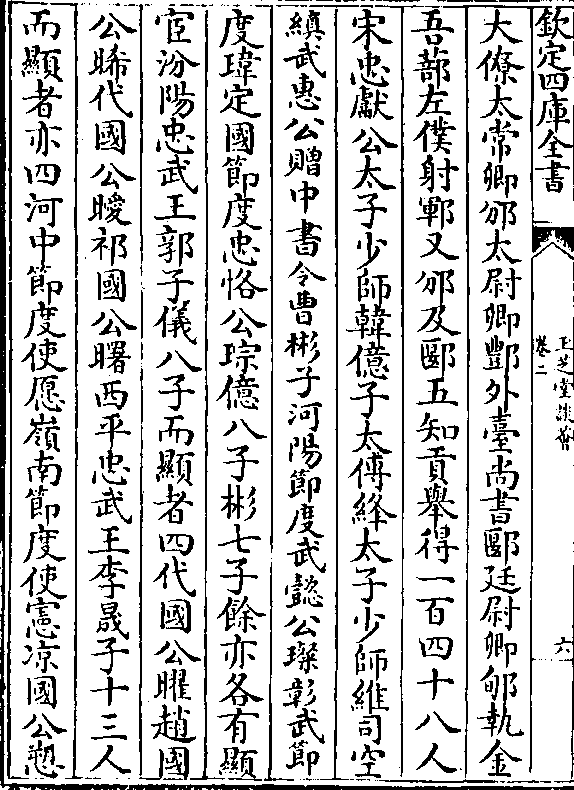 欽定四庫全書
玉芝堂談薈
卷二
六
大僚太常卿邠太尉卿酆外臺尚書郾廷尉卿郇執金
吾鄯左僕射鄆又邠及郾五知貢舉得一百四十八人
宋忠獻公太子少師韓億子太傅絳太子少師維司空
縝武惠公贈中書令曹彬子河陽節度武懿公璨彰武節
度瑋定國節度忠恪公琮億八子彬七子餘亦各有顯
宦汾陽忠武王郭子儀八子而顯者四代國公曜趙國
公晞代國公曖祁國公曙西平忠武王李晟子十三人
而顯者亦四河中節度使愿嶺南節度使憲凉國公愬